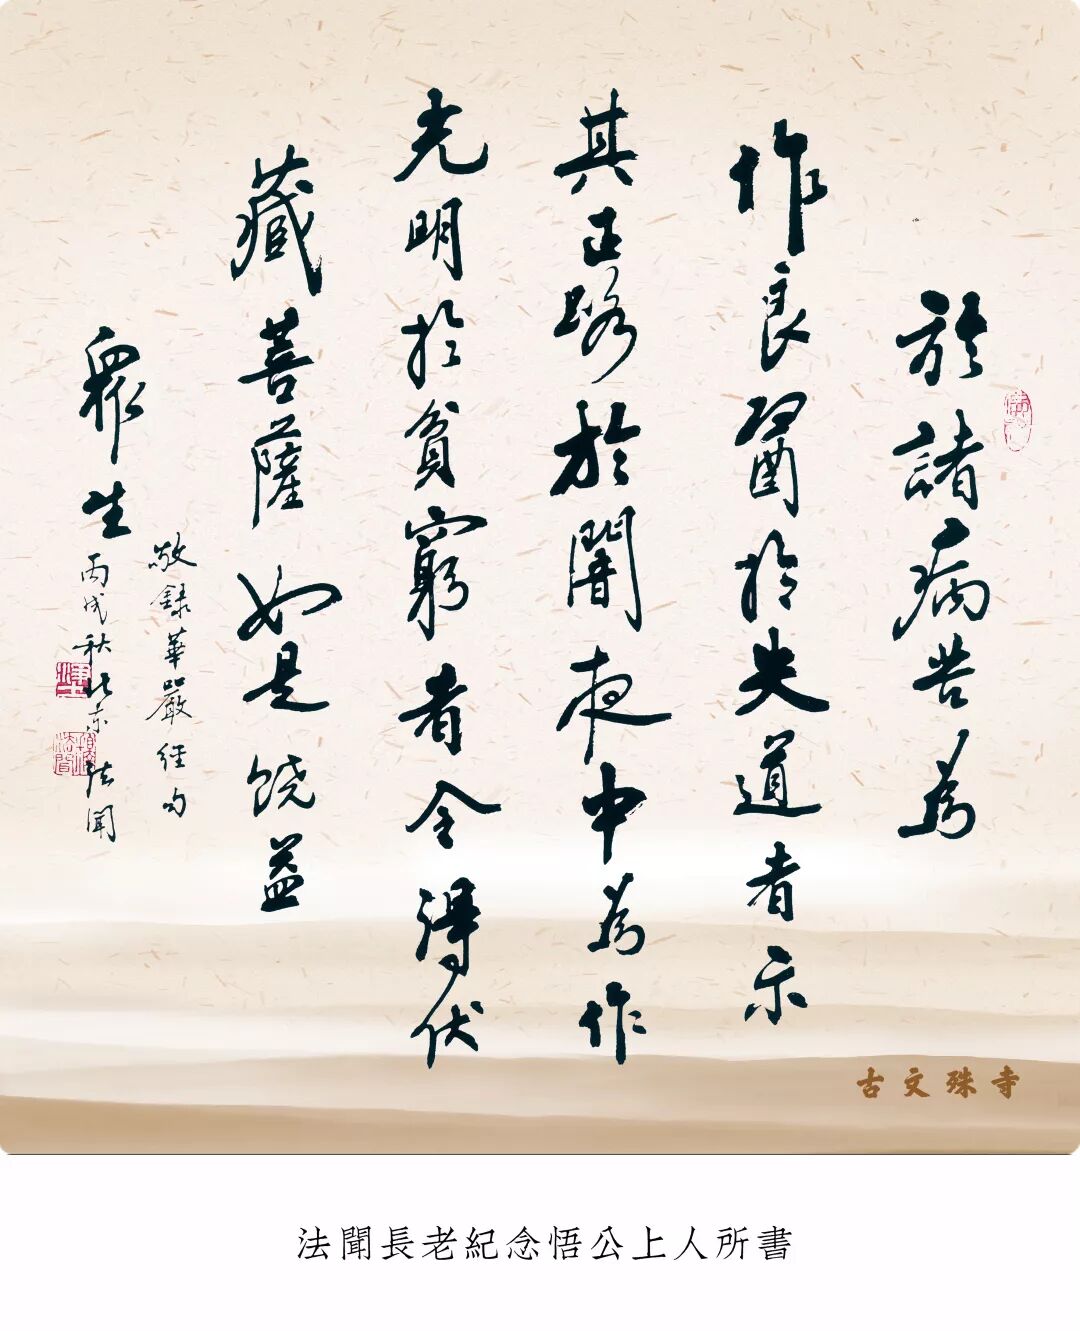 於諸病苦為
作良醫於失道者示
其正路於闇夜中為作
光明於貧窮者令得伏
藏菩薩如是饶益
眾生
敬錄華嚴經句
丙戌秋北京法聞
古文殊寺
法聞長老紀念悟公上人所書